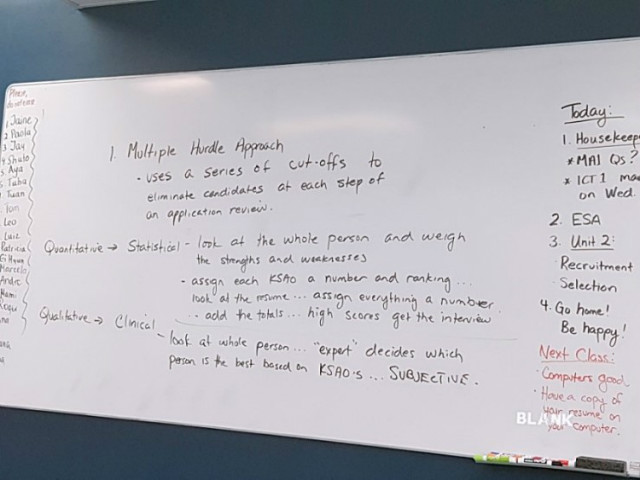 Please,
do not erase
1. Jaine
2 Paola
3 Jay
Aya
Tuan
Tom
Leo
Luiz
Patricia
Marcelo
Andre
1. Multiple Hurdle Approach
- uses a series of cut-offs to
eliminate candidates at each step of
an application review.
Quantitative → Statistical - look at the whole person and weigh
the strengths and weaknesses
- assign each KSAO a number and ranking...
look at the resume... assign everything a number.
- add the totals... high scores get the interview
Qualitative → Clinical
- look at whole person... "expert" decides which
person is the best based on KSAO's... SUBJECTIVE.
Today:
1. Housekeep
* MA1 Qs?
* ICT 1 ma
on Wed.
2. ESA
3. Unit 2:
Recruitment
Selection
4. Go home!
Be happy!
Next Class:
· Computers good
· Have a copy of
your resume on
your computer.
BLANK